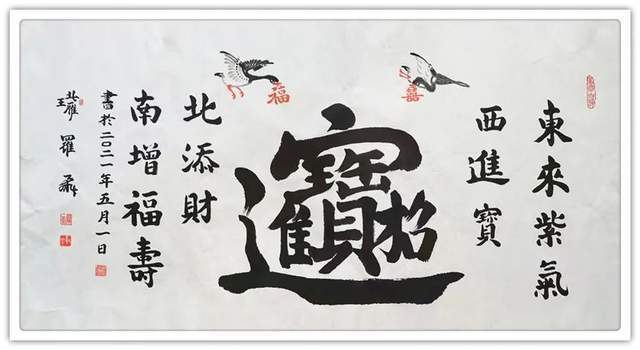 東來紫氣
西進寶
招財進寶
福
北添財
南增福壽
書於二〇二一年五月一日
羅